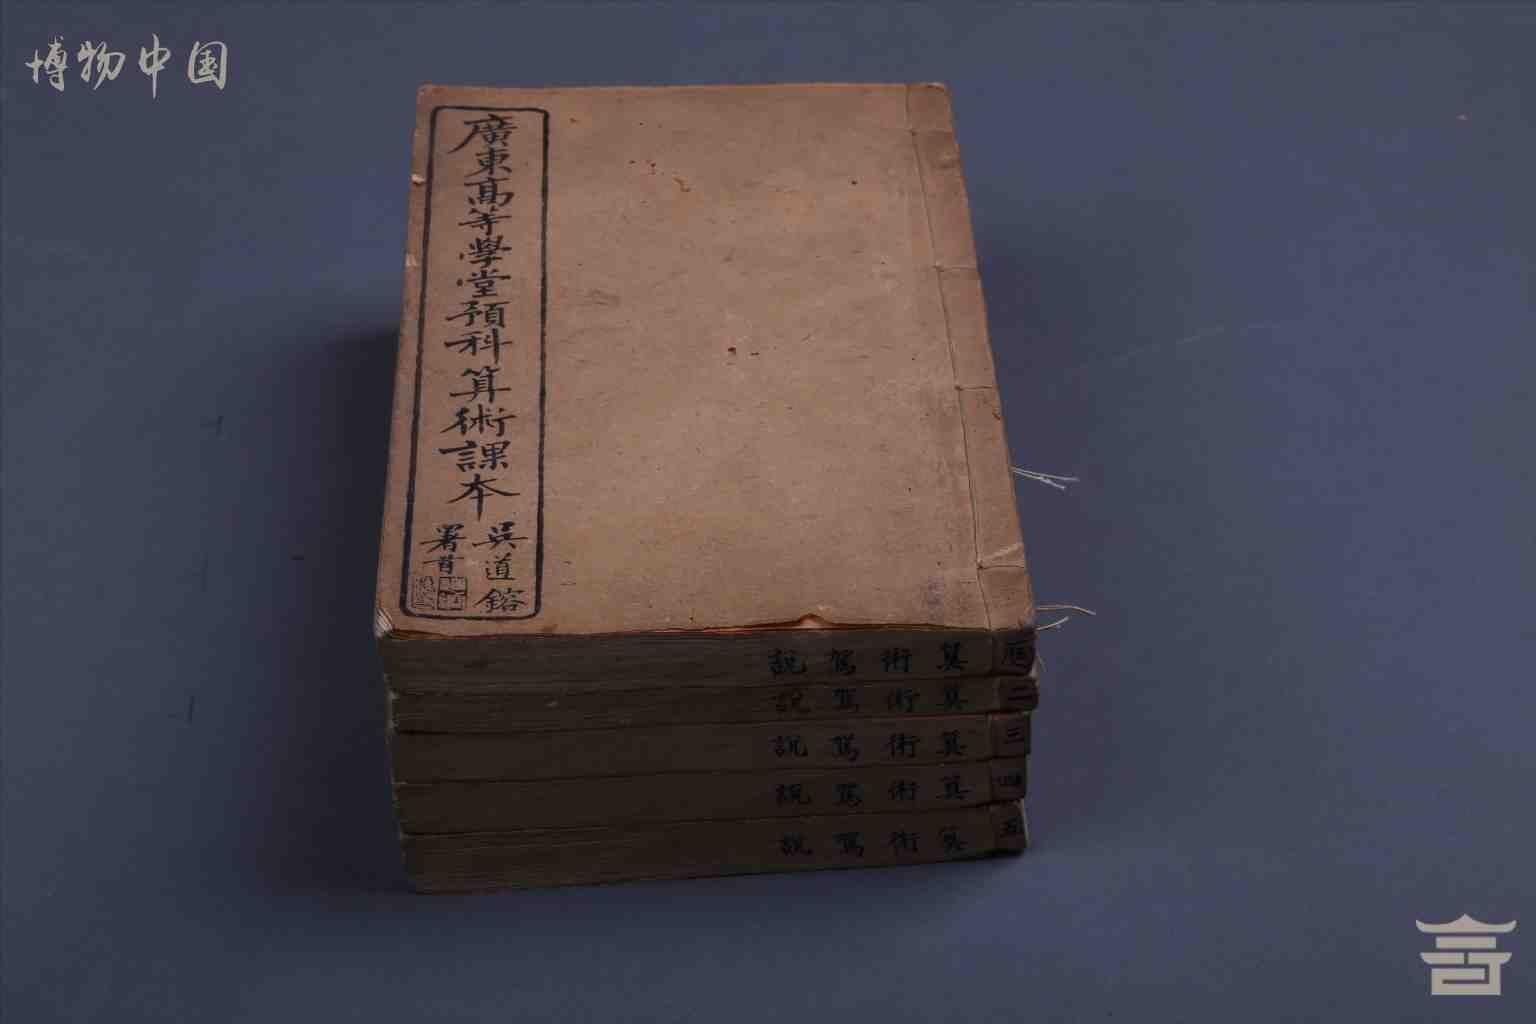 博物中国
廣東高等學堂預科算術課本
吳道鎔
署首
算術駕說
二
算術駕說
三
算術駕說
四
算術駕說
五
算術駕說